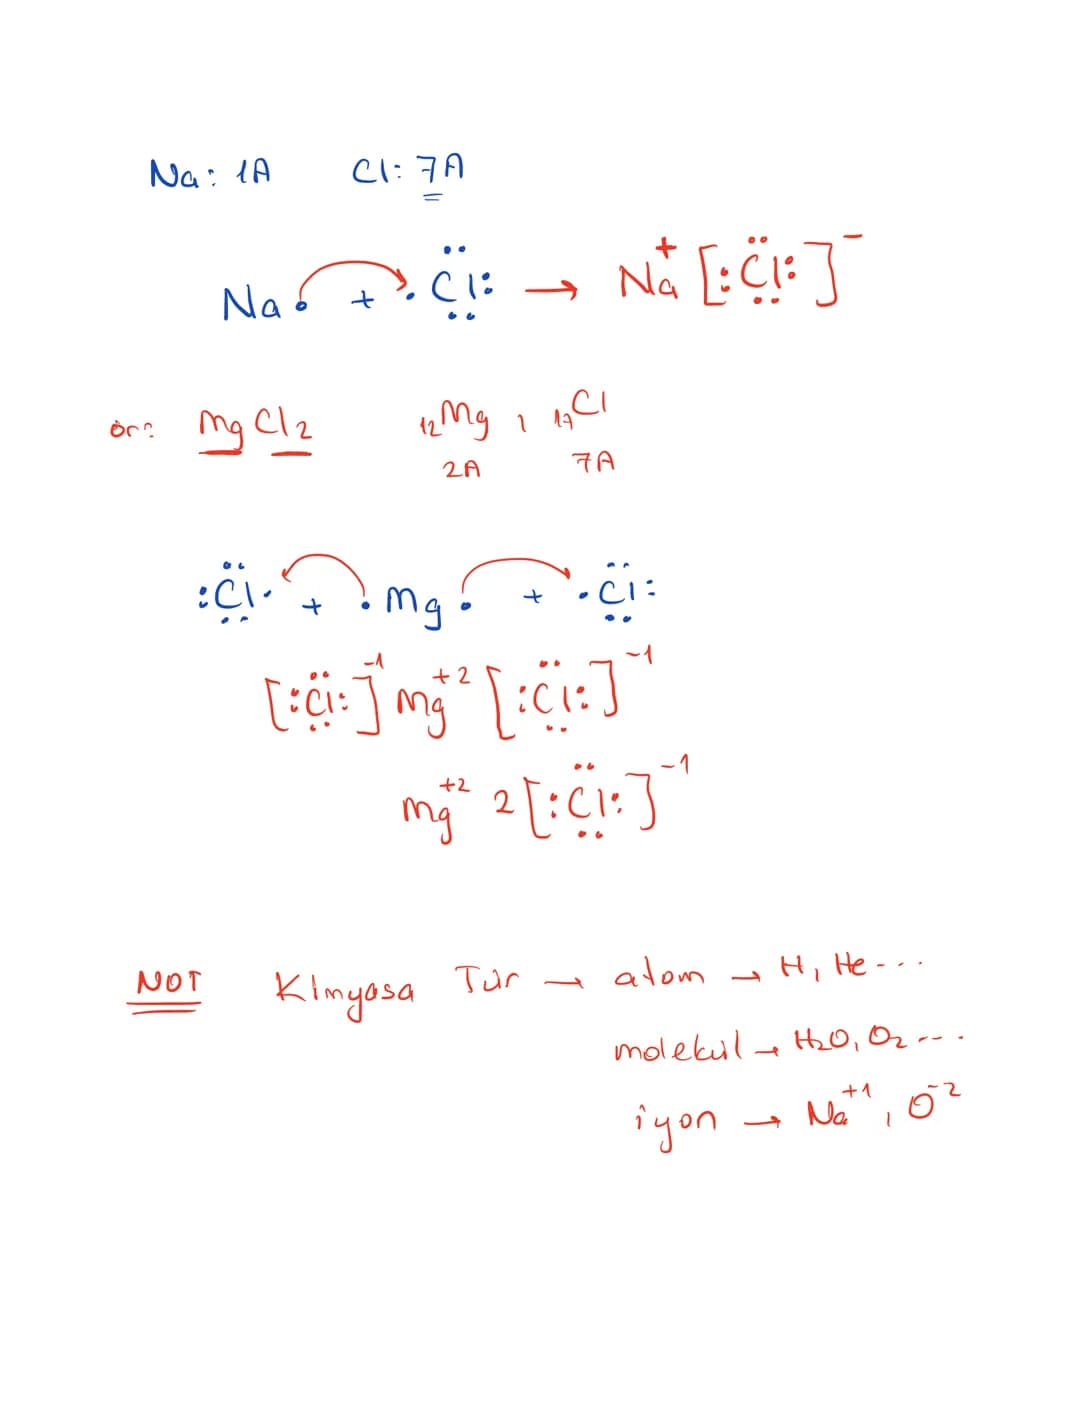 Na: 1A Cl: 7A
Na + Cl → Na⁺ [Cl]⁻
ör: MgCl₂ ₁₂Mg, ₁₇Cl
2A 7A
Cl + Mg + Cl
[Cl]⁻¹ Mg⁺² [Cl]⁻¹
Mg⁺² 2[Cl]⁻¹
NOT Kimyasa Tür → atom → H, He ...
molekül → H₂O, O₂ ...
iyon → Na⁺¹, O⁻²